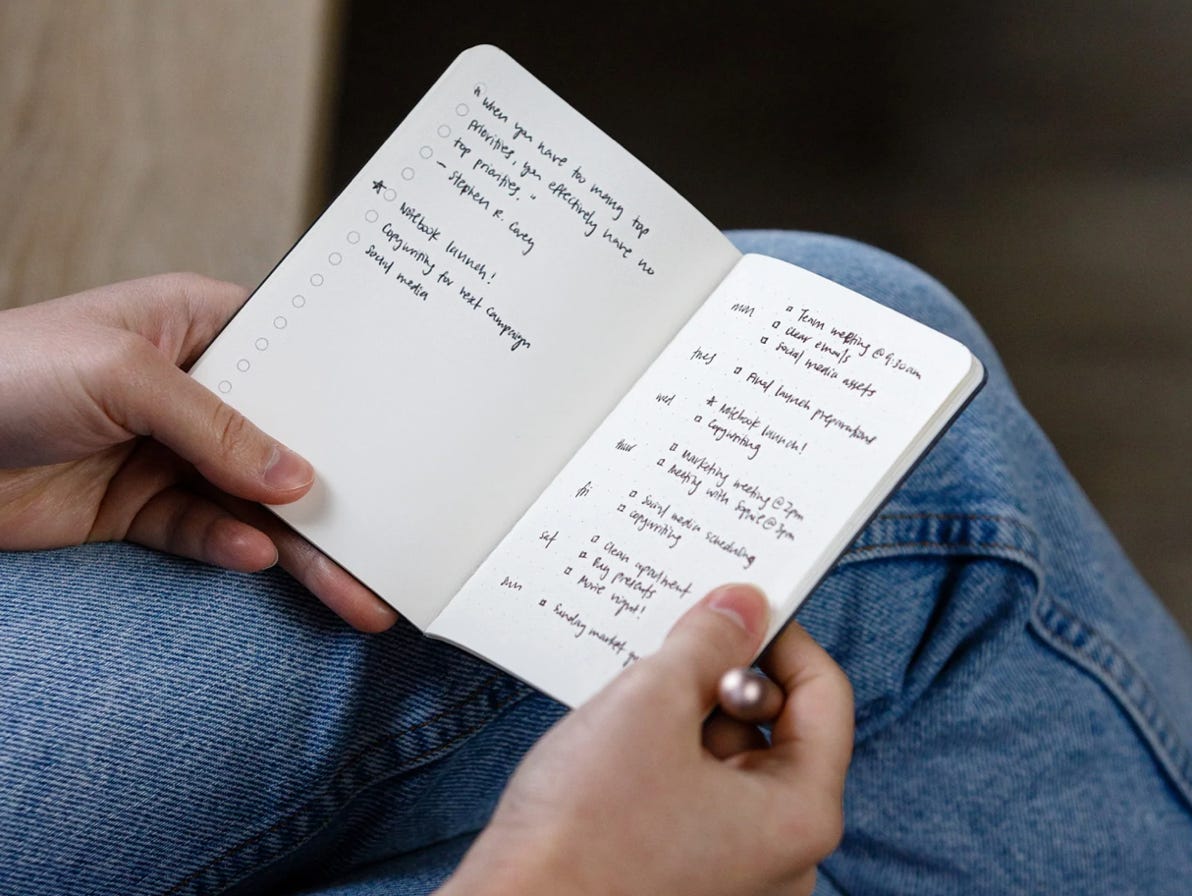 "When you have too many top
priorities, you effectively have no
top priorities."
— Stephen R. Covey
★ Notebook launch!
Copywriting for next campaign
Social media
mon
Team meeting @ 9:30am
Clear emails
Social media assets
tues
Final launch preparations
wed
★ Notebook launch!
Copywriting
thur
Marketing meeting @ 2pm
Meeting with Sophie @ 3pm
fri
Social media scheduling
Copywriting
sat
Clean apartment
Buy presents
Movie night!
sun
Sunday market